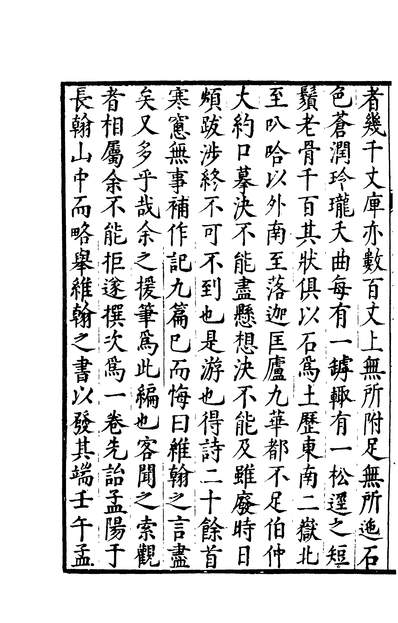 者幾千丈庳亦數百丈上無所附足無所迤石
色蒼潤玲瓏夭曲每有一罅輙有一松逕之短
鬚老骨千百其狀俱以石爲土歷東南二嶽北
至叭哈以外南至落迦匡廬九華都不足伯仲
大約口摹決不能盡懸想決不能及雖廢時日
煩跋涉終不可不到也是游也得詩二十餘首
寒窻無事補作記九篇已而悔曰維翰之言盡
矣又多乎哉余之援筆爲此編也客聞之索觀
者相屬余不能拒遂撰次爲一卷先詒孟陽于
長翰山中而略舉維翰之書以發其端壬午孟